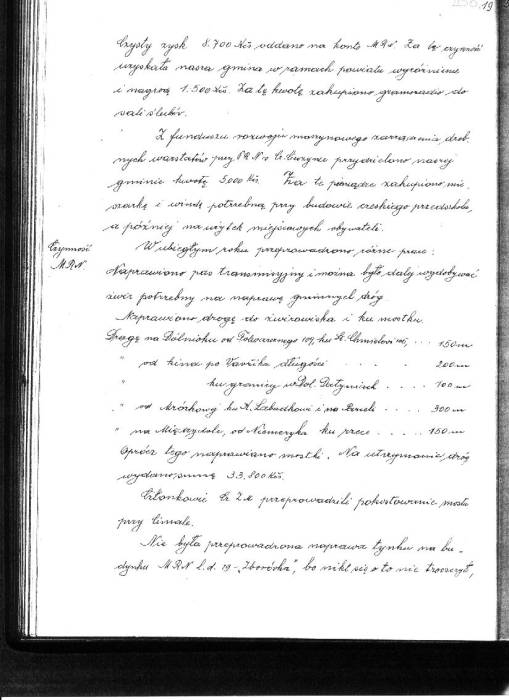 19
Czysty zysk 8.700 Kčs oddano na konto MRN. Za tę czynność
uzyskała nasza gmina w ramach powiatu wyróżnienie
i nagrodę 1.500 Kčs. Za tę kwotę zakupiono gramoradio do
sali ślubów.
Z funduszu rozwoju maszynowego zarządzenia drob-
nych warsztatów przy PRN w Cz. Cieszynie przydzielono naszej
gminie kwotę 5000 Kčs. Za te pieniądze zakupiono mie-
szarkę i windę potrzebną przy budowie czeskiego przedszkola,
a później na użytek miejscowych obywateli.
Czynność
MRN
W ubiegłym roku przeprowadzono różne prace:
Naprawiono pas transmisyjny i można było dalej wydobywać
żwir potrzebny na naprawę gminnych dróg
Naprawiono drogę do żwirowiska i ku mostku.
Drogę na Dólnioku od 109, ku . . . 150 m
" od kina po Vavříka długości . . . . 200 m
" ku granicy w Dol. Datyniach . . . . 100 m
" od ku K. i na . . . . 300 m
" na Międzydole, od Niemczyka ku rzece . . . . 150 m
Oprócz tego naprawiano mostki. Na utrzymanie dróg
wydano sumę 33.800 Kčs.
Członkowie przeprowadzili mostu
przy
Nie była przeprowadzona naprawa tynku na bu-
dynku MRN l. d. 19 - , bo nikt się o to nie troszczył,